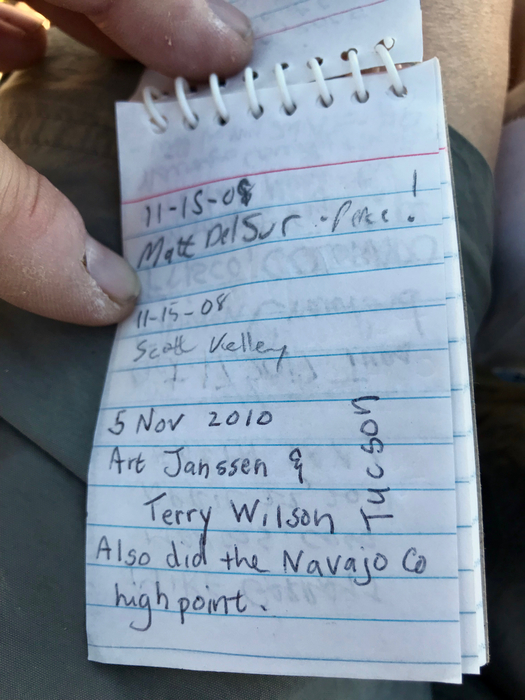 11-15-08
Matt DelSur - Peace!
11-15-08
Scott Kelley
5 Nov 2010
Art Janssen &
Terry Wilson
Tucson
Also did the Navajo Co
high point.